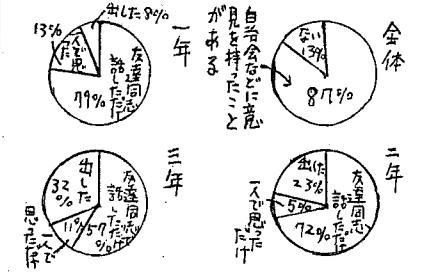 全体
自治会などに意
見を持ったこと
がある
ない
13%
87%
一年
出した8%
13%
一人で思
った
友達同志
話しただけ
79%
二年
出した
23%
友達同志
話しただけ
5%
一人で思った
だけ
72%
三年
出した
32%
友達同志で
話しただけ
11%
57%
一人で
思っただけ